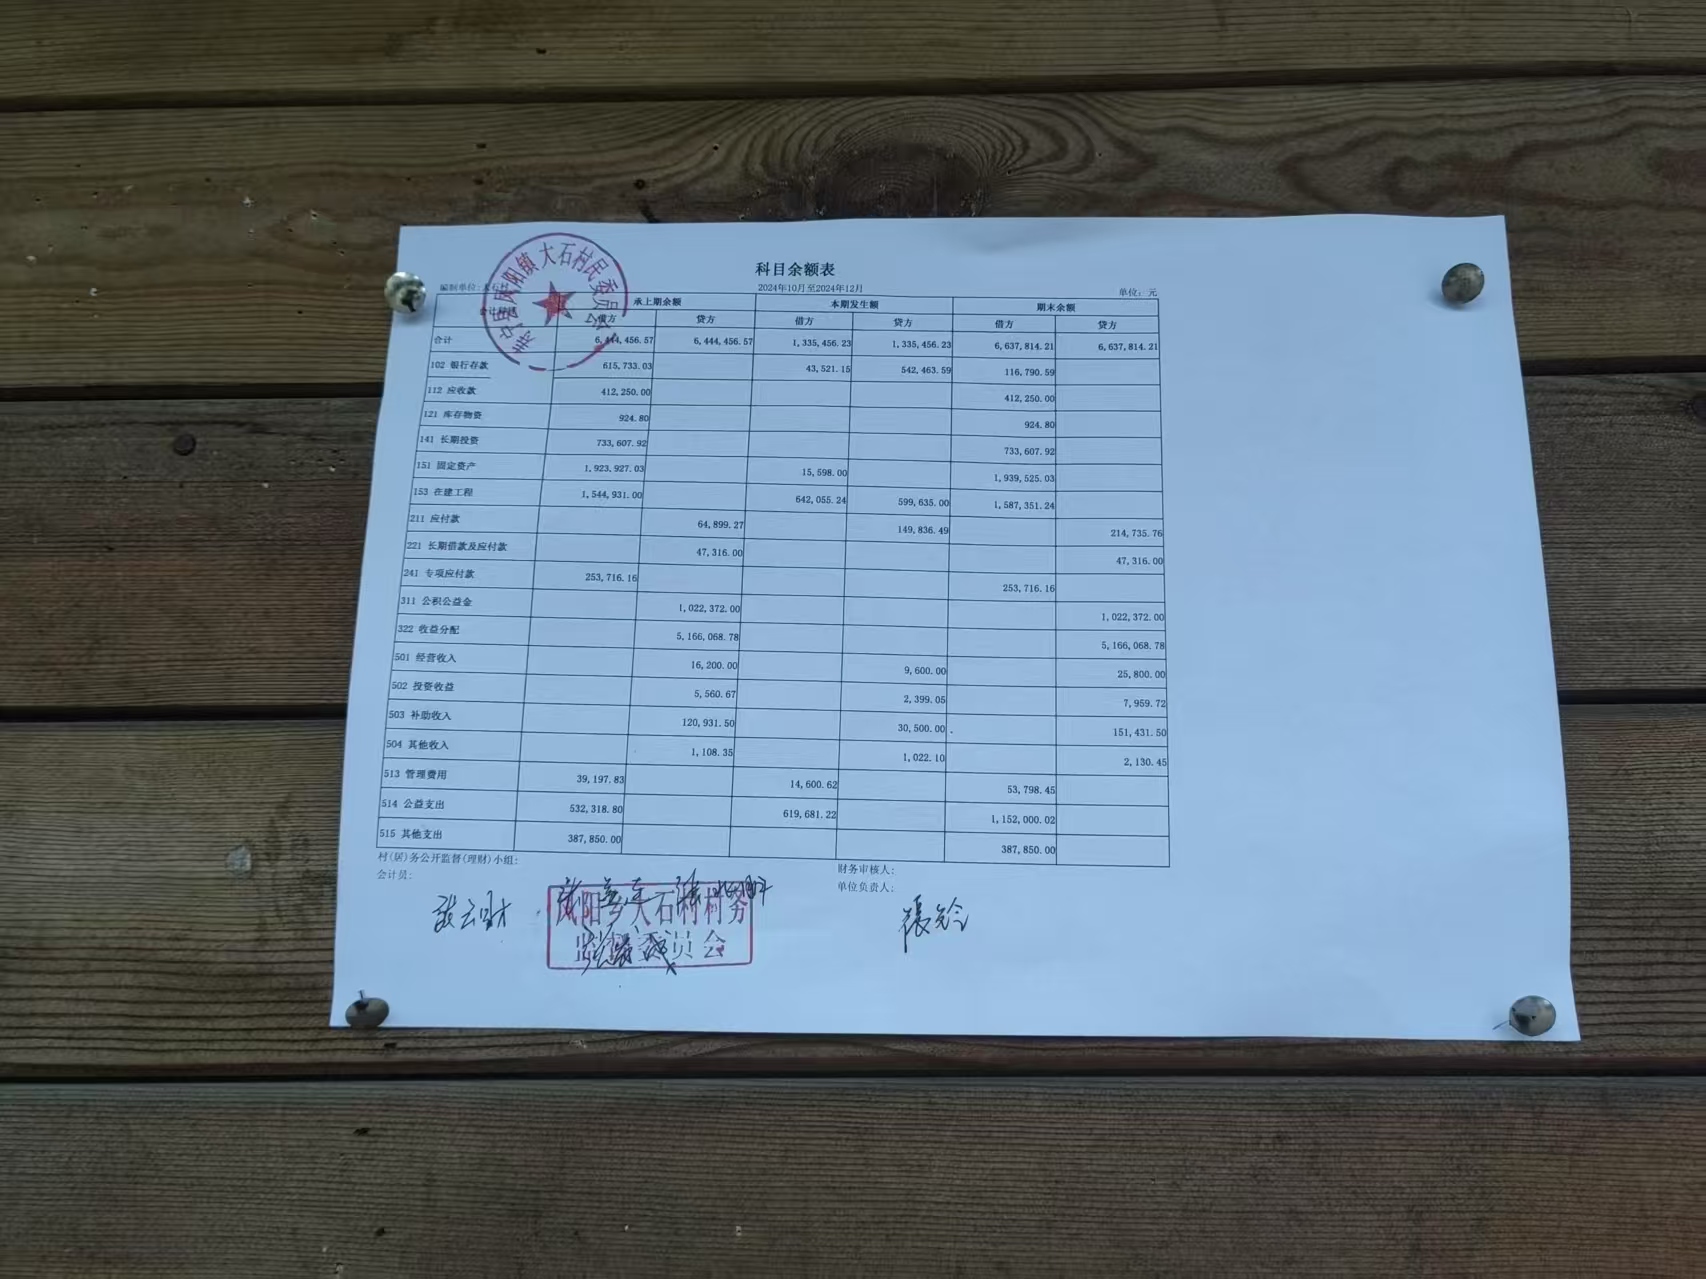 科目余额表
2024年10月至2024年12月
编制单位: 单位: 元
凤阳镇大石村民委员会
承上期余额 本期发生额 期末余额
借方 贷方 借方 贷方 借方 贷方
合计 6,444,456.57 6,444,456.57 1,335,456.23 1,335,456.23 6,637,814.21 6,637,814.21
102 银行存款 615,733.03 43,521.15 542,463.59 116,790.59
112 应收款 412,250.00 412,250.00
121 库存物资 924.80 924.80
141 长期投资 733,607.92 733,607.92
151 固定资产 1,923,927.03 15,598.00 1,939,525.03
153 在建工程 1,544,931.00 642,055.24 599,635.00 1,587,351.24
211 应付款 64,899.27 149,836.49 214,735.76
221 长期借款及应付款 47,316.00 47,316.00
241 专项应付款 253,716.16 253,716.16
311 公积公益金 1,022,372.00 1,022,372.00
322 收益分配 5,166,068.78 5,166,068.78
501 经营收入 16,200.00 9,600.00 25,800.00
502 投资收益 5,560.67 2,399.05 7,959.72
503 补助收入 120,931.50 30,500.00 151,431.50
504 其他收入 1,108.35 1,022.10 2,130.45
513 管理费用 39,197.83 14,600.62 53,798.45
514 公益支出 532,318.80 619,681.22 1,152,000.02
515 其他支出 387,850.00 387,850.00
村(居)务公开监督(理财)小组: 财务审核人:
会计员: 单位负责人:
凤阳乡大石村村务
监督委员会